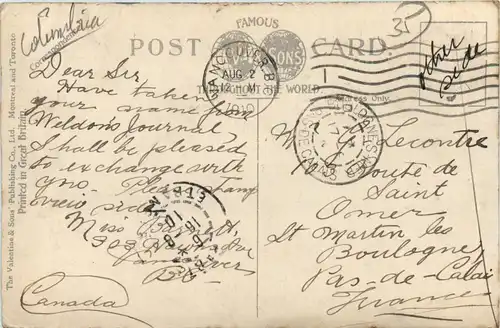 Columbia
Correspondence
FAMOUS
POST CARD.
THROUGHOUT THE WORLD
VANCOUVER B.
AUG 2
1910
Address Only.
35
other
side
Dear Sir,
Have taken
your name from
Weldon's Journal
Shall be pleased
to exchange with
you. Please stamp
view side
Miss
903
Vancouver
B.C.
Canada
M G Lecontre
Route de
Saint
Omer
St Martin les
Boulogne
Pas-de-Calais
France
The Valentine & Sons' Publishing Co., Ltd., Montreal and Toronto
Printed in Great Britain.